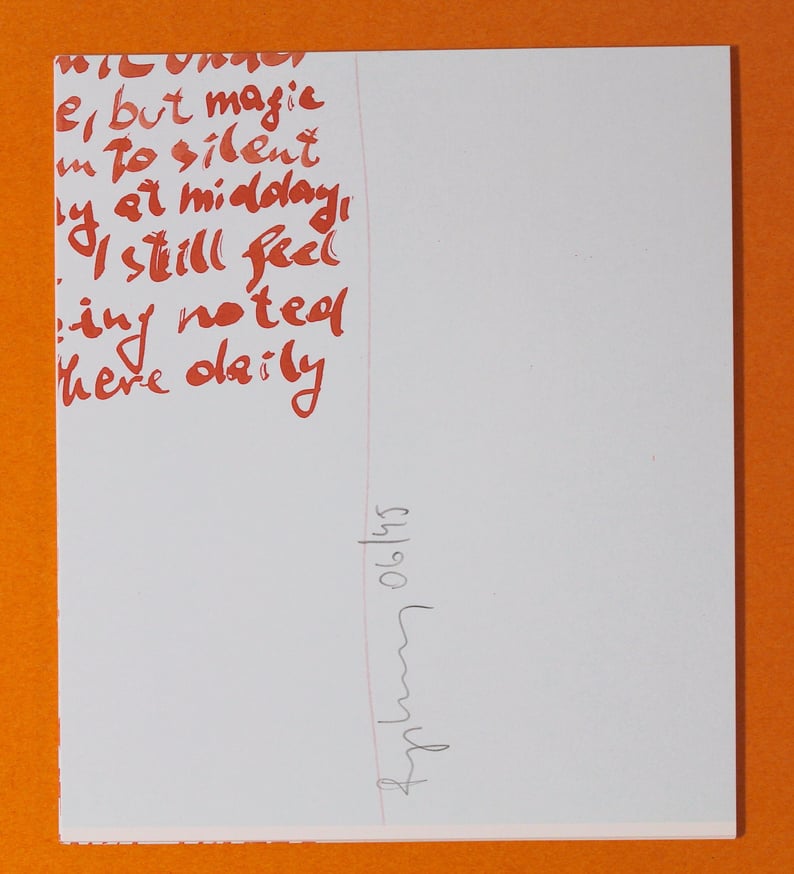 e, but magic
to silent
at midday,
I still feel
ing noted
here daily
06/45